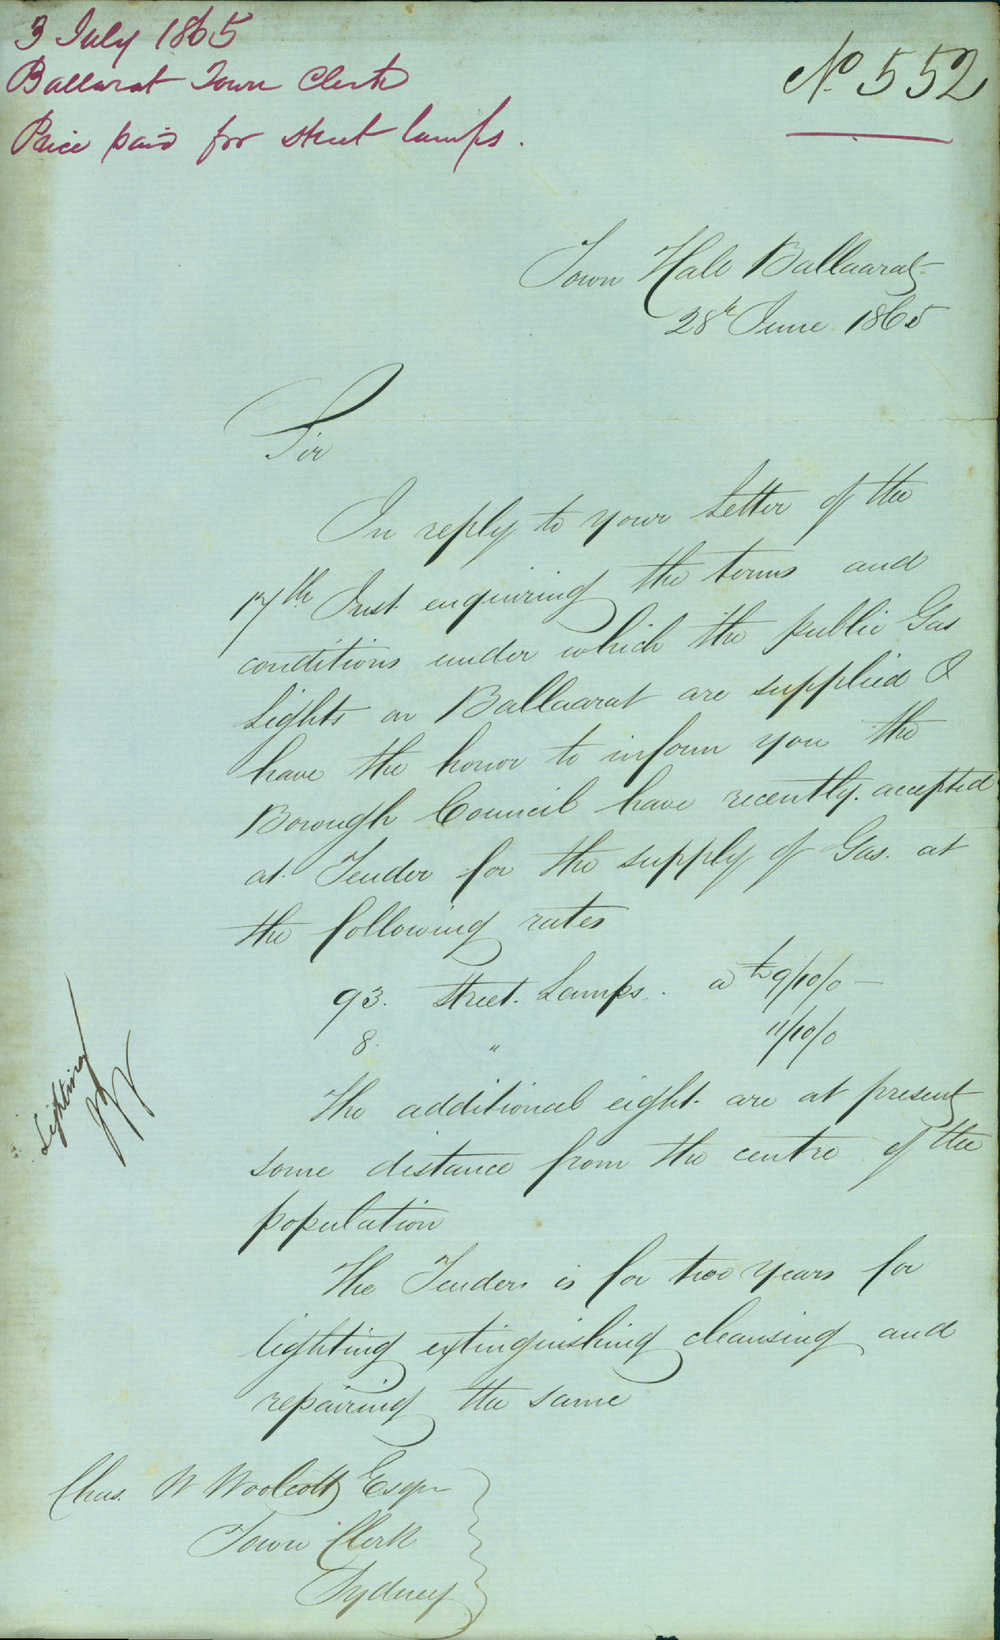 3 July 1865
Ballarat Town Clerk
Price paid for street lamps.
No. 552
Town Hall Ballaarat
28th June 1865
Sir
In reply to your Letter of the
17th Inst enquiring the terms and
conditions under which the public Gas
Lights in Ballaarat are supplied I
have the honor to inform you the
Borough Council have recently. accepted
at. Tender for the supply of Gas. at
the following rates
93. Street. Lamps. a £9/10/0 —
8. " 11/10/0
The additional eight. are at present
some distance from the centre of the
population
The Tender is for two years for
lighting extinguishing cleansing and
repairing the same
Chas. W Woolcott Esqr
Town Clerk
Sydney
Lighting